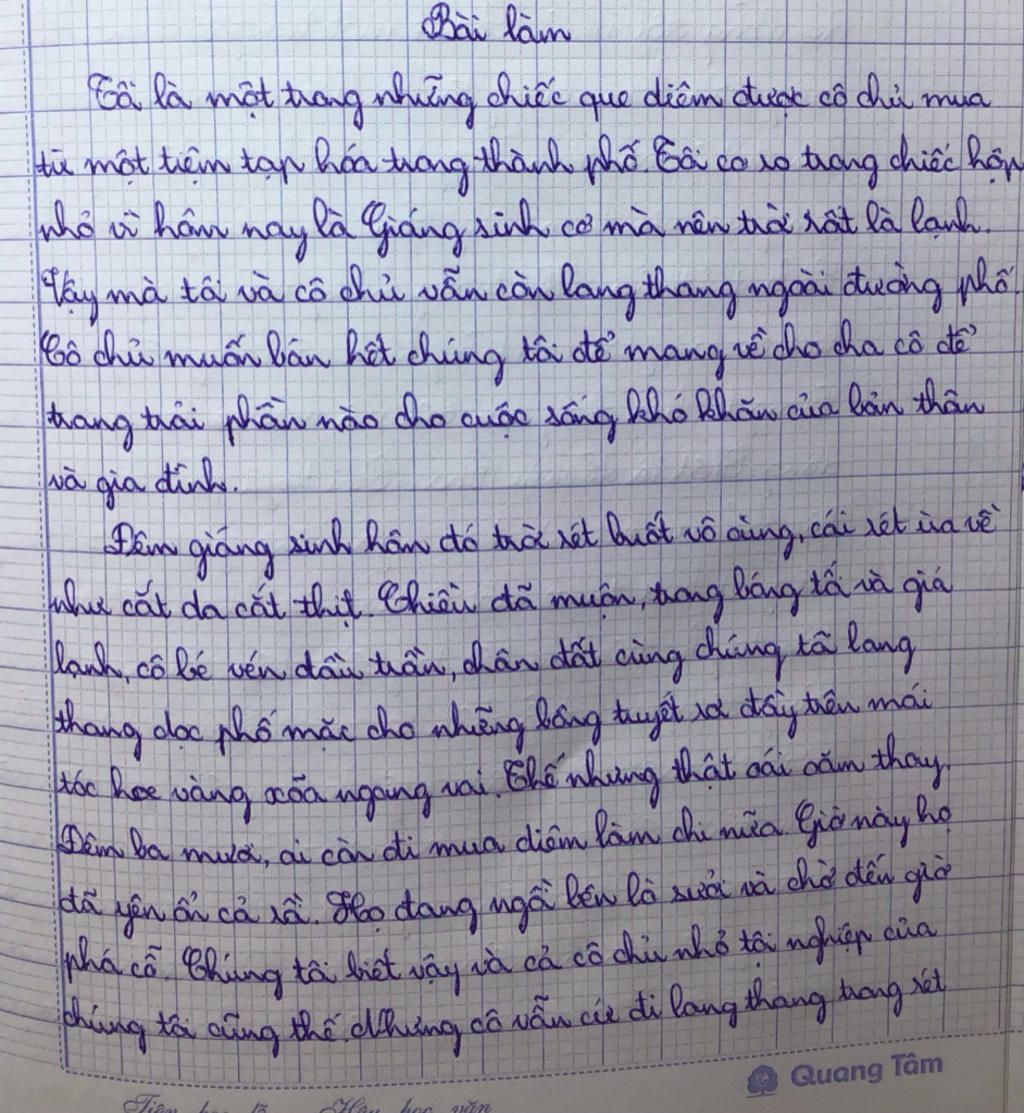 Bài làm
Tôi là một trong những chiếc que diêm được cô chủ mua
từ một tiệm tạp hóa trong thành phố. Tôi co ro trong chiếc hộp
nhỏ vì hôm nay là Giáng sinh cơ mà nên trời rất là lạnh.
Vậy mà tôi và cô chủ vẫn còn lang thang ngoài đường phố.
Cô chủ muốn bán hết chúng tôi để mang về cho cha cô để
trang trải phần nào cho cuộc sống khó khăn của bản thân
và gia đình.
Đêm giáng sinh hôm đó trời rét buốt vô cùng, cái rét ùa về
như cắt da cắt thịt. Chiều đã muộn, trong bóng tối và giá
lạnh, cô bé vén đầu trần, chân đất cùng chúng tôi lang
thang dọc phố mặc cho những bông tuyết rơi đầy trên mái
tóc hoe vàng xõa ngang vai. Thế nhưng thật oái oăm thay.
Đêm ba mươi, ai còn đi mua diêm làm chi nữa. Giờ này họ
đã yên ổn cả rồi. Họ đang ngồi bên lò sưởi và chờ đến giờ
phá cỗ. Chúng tôi biết vậy và cả cô chủ nhỏ tội nghiệp của
chúng tôi cũng thế. Nhưng cô vẫn cứ đi lang thang trong rét
Quang Tâm
Tiên học lễ Hậu học văn